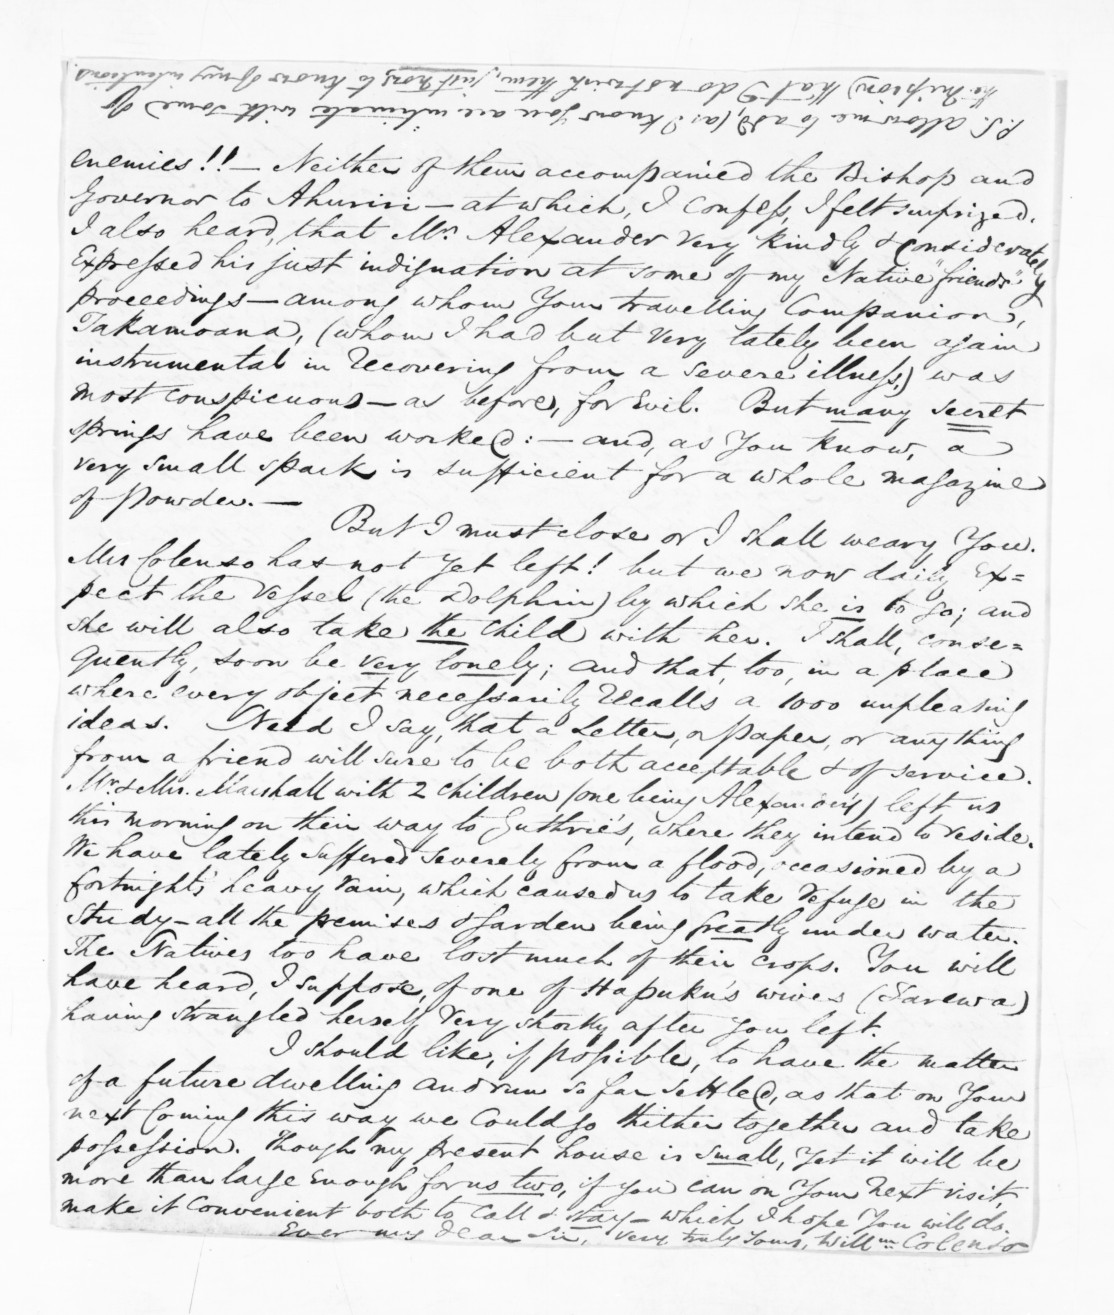 P.S. allow me to add, (as I know you are intimate with some of
the Mission) that I do not wish them, just now, to know of my intentions.
enemies!! — Neither of them accompanied the Bishop and
Governor to Ahuriri — at which, I confess, I felt surprized.
I also heard, that Mr. Alexander very kindly & considerately
expressed his just indignation at some of my Native "friends'"
proceedings — among whom Your travelling Companion,
Takamoana, (whom I had but very lately been again
instrumental in recovering from a severe illness,) was
most conspicuous — as before, for Evil. But many secret
springs have been worked: — and, as You know, a
very small spark is sufficient for a whole magazine
of powder. —
But I must close or I shall weary You.
Mrs Colenso has not yet left! but we now daily ex=
pect the Vessel (the Dolphin) by which she is to go; and
she will also take the Child with her. I shall, conse=
quently, soon be very lonely; and that, too, in a place
where every object necessarily recalls a 1000 unpleasing
ideas. Need I say, that a Letter, or paper, or anything
from a friend will sure to be both acceptable & of service.
Mr. & Mrs. Marshall with 2 children (one being Alexander's) left us
this morning on their way to Guthrie's, where they intend to reside.
We have lately suffered severely from a flood, occasioned by a
fortnight's heavy rain, which caused us to take refuge in the
Study — all the premises & Garden being greatly under water.
The Natives too have lost much of their crops. You will
have heard, I suppose, of one of Hapuku's wives (Tarewa)
having strangled herself very shortly after you left.
I should like, if possible, to have the matter
of a future dwelling and run so far settled, as that on Your
next Coming this way we could go thither together and take
possession. Though my present house is small, yet it will be
more than large enough for us two, if you can on Your next visit,
make it convenient both to call & stay — which I hope You will do.
Ever my dear Sir, very truly Yours, Willm Colenso